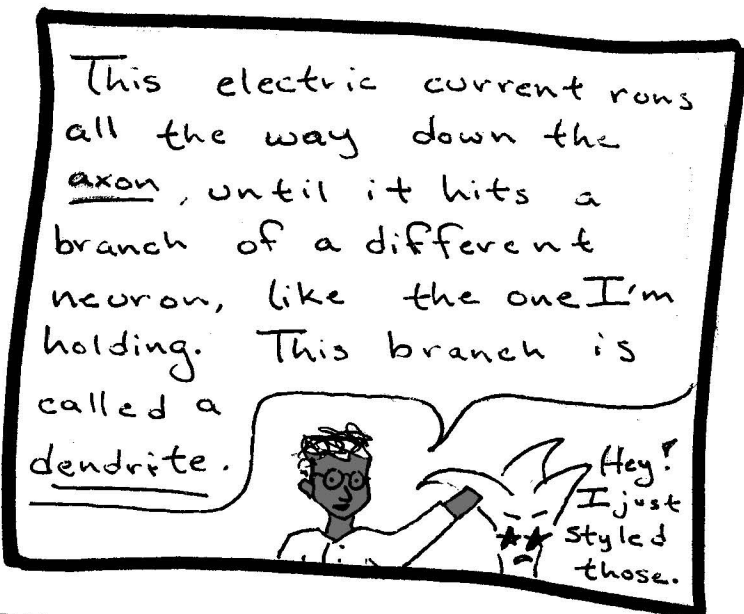 This electric current runs
all the way down the
axon, until it hits a
branch of a different
neuron, like the one I'm
holding. This branch is
called a
dendrite.
Hey!
I just
styled
those.